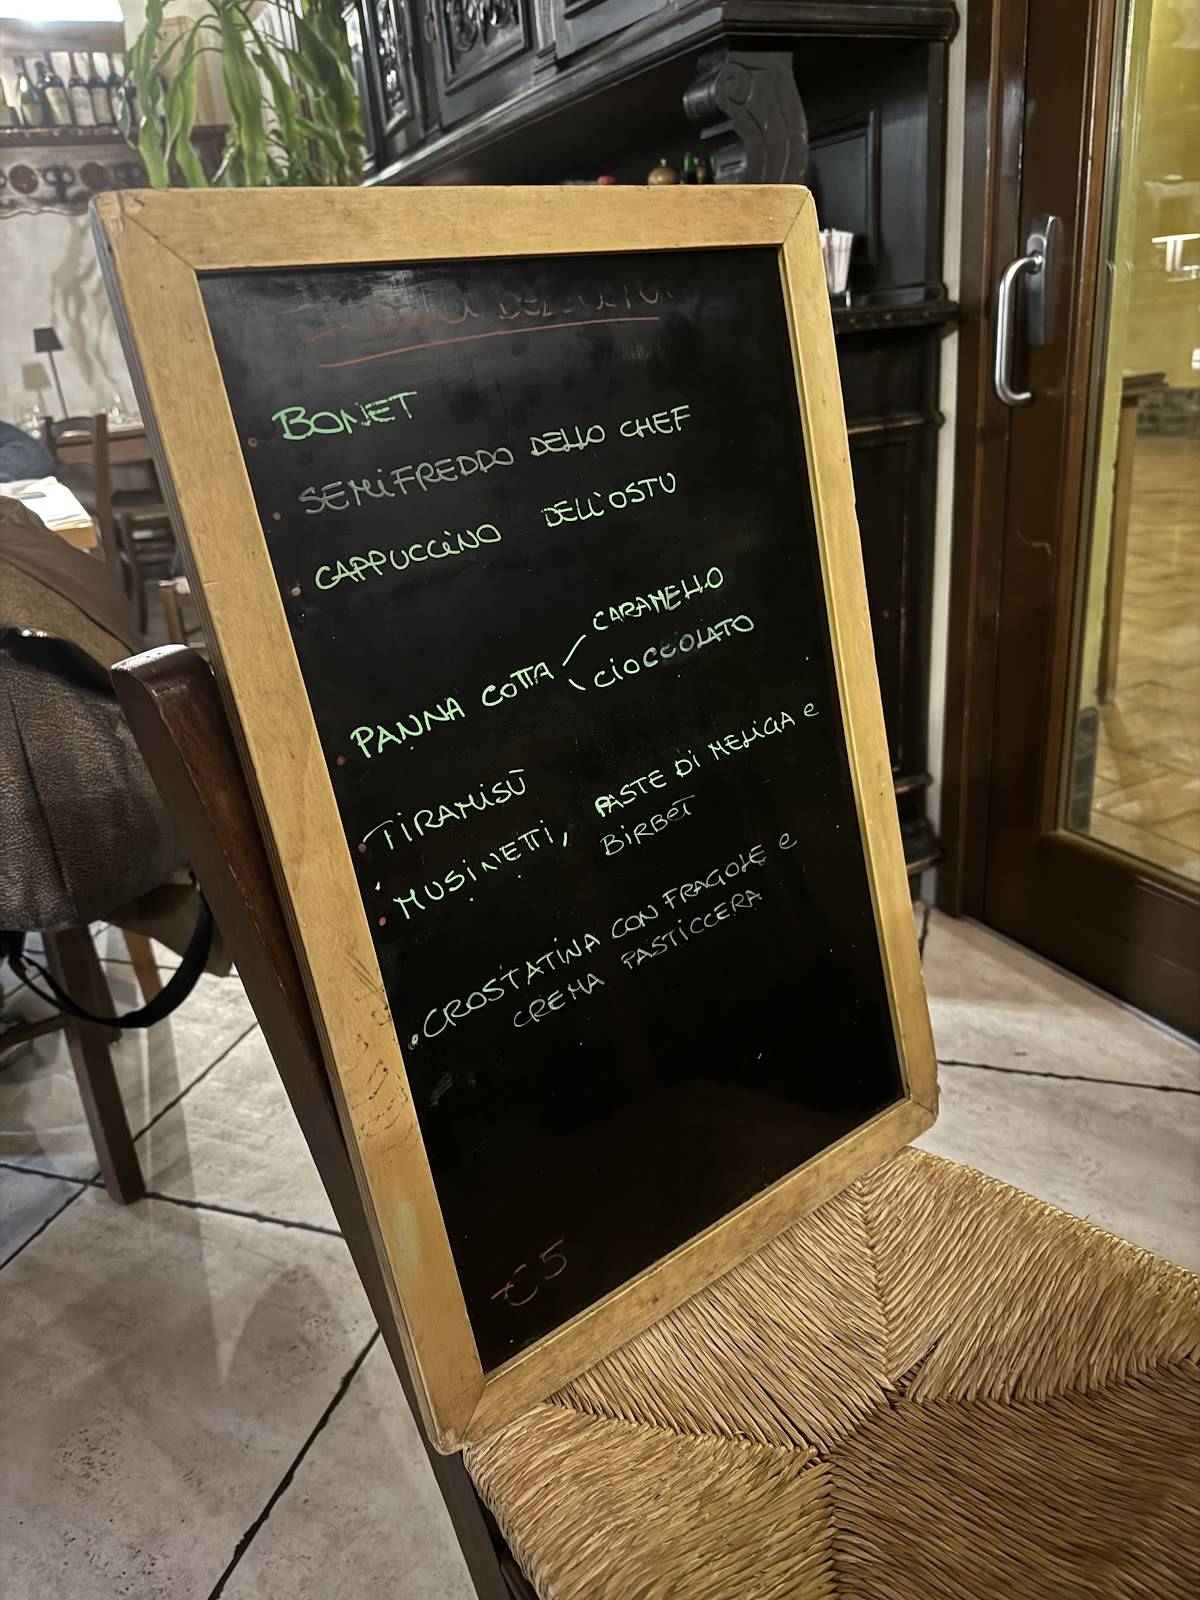 BONET
SEMIFREDDO DELLO CHEF
CAPPUCCINO DELL'OSTU
PANNA COTTA
CARAMELLO
CIOCCOLATO
TIRAMISÙ
MUSINETTI, PASTE DI MELIGA e
BIRBET
CROSTATINA CON FRAGOLE e
CREMA PASTICCERA
€5